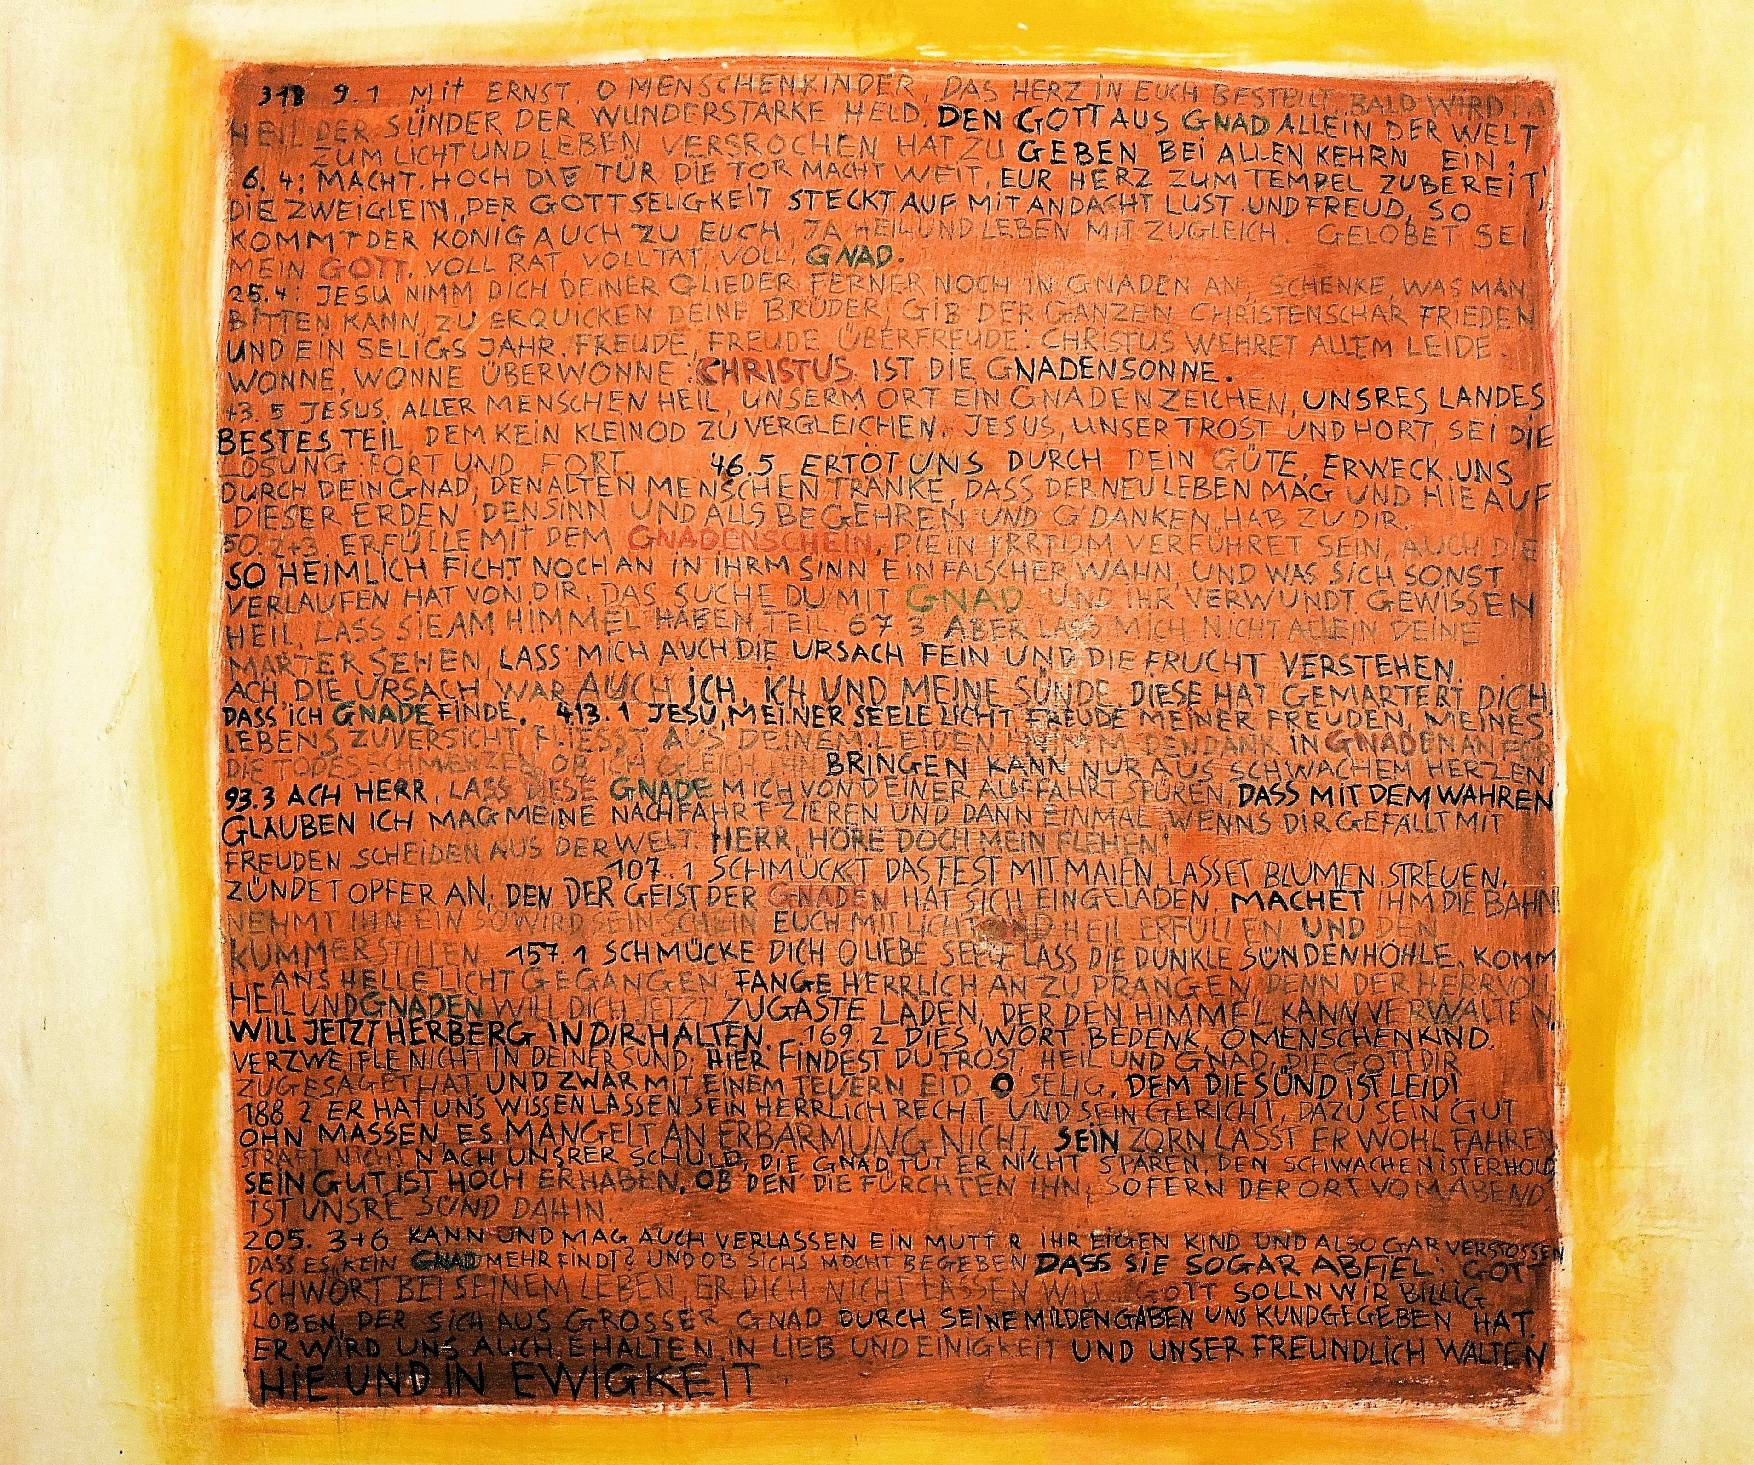 318 9.1 MIT ERNST, O MENSCHENKINDER, DAS HERZ IN EUCH BESTELLT, BALD WIRD DA
HEIL DER SÜNDER DER WUNDERSTARKE HELD, DEN GOTT AUS GNAD ALLEIN DER WELT
ZUM LICHT UND LEBEN VERSROCHEN HAT ZU GEBEN BEI ALLEN KEHRN EIN.
6.4: MACHT HOCH DIE TÜR DIE TOR MACHT WEIT, EUR HERZ ZUM TEMPEL ZUBEREIT,
DIE ZWEIGLEIN DER GOTTSELIGKEIT STECKT AUF MIT ANDACHT LUST UND FREUD, SO
KOMMT DER KÖNIG AUCH ZU EUCH, JA HEIL UND LEBEN MIT ZUGLEICH. GELOBET SEI
MEIN GOTT, VOLL RAT, VOLL TAT, VOLL GNAD.
25.4: JESU NIMM DICH DEINER GLIEDER FERNER NOCH IN GNADEN AN, SCHENKE, WAS MAN
BITTEN KANN, ZU ERQUICKEN DEINE BRÜDER, GIB DER GANZEN CHRISTENSCHAR FRIEDEN
UND EIN SELIGS JAHR. FREUDE, FREUDE ÜBERFREUDE: CHRISTUS WEHRET ALLEM LEIDE.
WONNE, WONNE ÜBERWONNE: CHRISTUS IST DIE GNADENSONNE.
43.5 JESUS, ALLER MENSCHEN HEIL, UNSERM ORT EIN GNADENZEICHEN, UNSRES LANDES
BESTES TEIL DEM KEIN KLEINOD ZU VERGLEICHEN. JESUS, UNSER TROST UND HORT, SEI DIE
LOSUNG FORT UND FORT. 46.5 ERTÖT UNS DURCH DEIN GÜTE, ERWECK UNS
DURCH DEIN GNAD, DEN ALTEN MENSCHEN TRÄNKE, DASS DER NEU LEBEN MAG UND HIE AUF
DIESER ERDEN DEN SINN UND ALLS BEGEHREN UND G'DANKEN HAB ZU DIR.
50.2+3 ERFÜLLE MIT DEM GNADENSCHEIN, DIE IN IRRTUM VERFÜHRET SEIN, AUCH DIE
SO HEIMLICH FICHT NOCH AN IN IHRM SINN EIN FALSCHER WAHN, UND WAS SICH SONST
VERLAUFEN HAT VON DIR, DAS SUCHE DU MIT GNAD UND IHR VERWUNDT GEWISSEN
HEIL, LASS SIE AM HIMMEL HABEN TEIL. 67.3 ABER LASS MICH NICHT ALLEIN DEINE
MARTER SEHEN, LASS MICH AUCH DIE URSACH FEIN UND DIE FRUCHT VERSTEHEN.
ACH, DIE URSACH WAR AUCH ICH, ICH UND MEINE SÜNDE, DIESE HAT GEMARTERT DICH,
DASS ICH GNADE FINDE. 413.1 JESU, MEINER SEELE LICHT FREUDE MEINER FREUDEN, MEINES
LEBENS ZUVERSICHT, FLIESST AUS DEINEM LEIDEN DEN DANK IN GNADEN AN FÜR
DIE TODESSCHMERZEN, OB ICH GLEICH IHN BRINGEN KANN NUR AUS SCHWACHEM HERZEN
93.3 ACH HERR, LASS DIESE GNADE MICH VON DEINER AUFFAHRT SPÜREN, DASS MIT DEM WAHREN
GLAUBEN ICH MAG MEINE NACHFAHRT ZIEREN UND DANN EINMAL, WENNS DIR GEFÄLLT MIT
FREUDEN SCHEIDEN AUS DER WELT. HERR, HÖRE DOCH MEIN FLEHEN!
107.1 SCHMÜCKT DAS FEST MIT MAIEN, LASSET BLUMEN STREUEN,
ZÜNDET OPFER AN, DEN DER GEIST DER GNADEN HAT SICH EINGELADEN, MACHET IHM DIE BAHN
NEHMT IHN EIN SO WIRD SEIN SCHEIN EUCH MIT LICHT UND HEIL ERFÜLLEN UND DEN
KUMMER STILLEN. 157.1 SCHMÜCKE DICH O LIEBE SEELE LASS DIE DUNKLE SÜNDENHÖHLE, KOMM
ANS HELLE LICHT GEGANGEN, FANGE HERRLICH AN ZU PRANGEN, DENN DER HERR VOLL
HEIL UND GNADEN WILL DICH JETZT ZU GASTE LADEN, DER DEN HIMMEL KANN VERWALTEN,
WILL JETZT HERBERG IN DIR HALTEN. 169.2 DIES WORT BEDENK, O MENSCHENKIND.
VERZWEIFLE NICHT IN DEINER SÜND; HIER FINDEST DU TROST, HEIL UND GNAD, DIE GOTT DIR
ZUGESAGET HAT, UND ZWAR MIT EINEM TEUERN EID. O SELIG, DEM DIE SÜND IST LEID!
188.2 ER HAT UNS WISSEN LASSEN SEIN HERRLICH RECHT UND SEIN GERICHT, DAZU SEIN GUT
OHN MASSEN, ES MANGELT AN ERBARMUNG NICHT, SEIN ZORN LÄSST ER WOHL FAHREN
STRAFT NICHT NACH UNSRER SCHULD, DIE GNAD TUT ER NICHT SPAREN, DEN SCHWACHEN IST ER HOLD
SEIN GUT IST HOCH ERHABEN, OB DEN DIE FÜRCHTEN IHN, SOFERN DER ORT VOM ABEND,
IST UNSRE SÜND DAHIN.
205. 3+6 KANN UND MAG AUCH VERLASSEN EIN MUTT R IHR EIGEN KIND UND ALSO GAR VERSTOSSEN
DASS ES KEIN GNAD MEHR FINDT? UND OB SICHS MÖCHT BEGEBEN DASS SIE SOGAR ABFIEL: GOTT
SCHWÖRT BEI SEINEM LEBEN, ER DICH NICHT LASSEN WILL. GOTT SOLLN WIR BILLIG
LOBEN, DER SICH AUS GROSSER GNAD DURCH SEINE MILDEN GABEN UNS KUNDGEGEBEN HAT.
ER WIRD UNS AUCH EHALTEN IN LIEB UND EINIGKEIT UND UNSER FREUNDLICH WALTEN
HIE UND IN EWIGKEIT